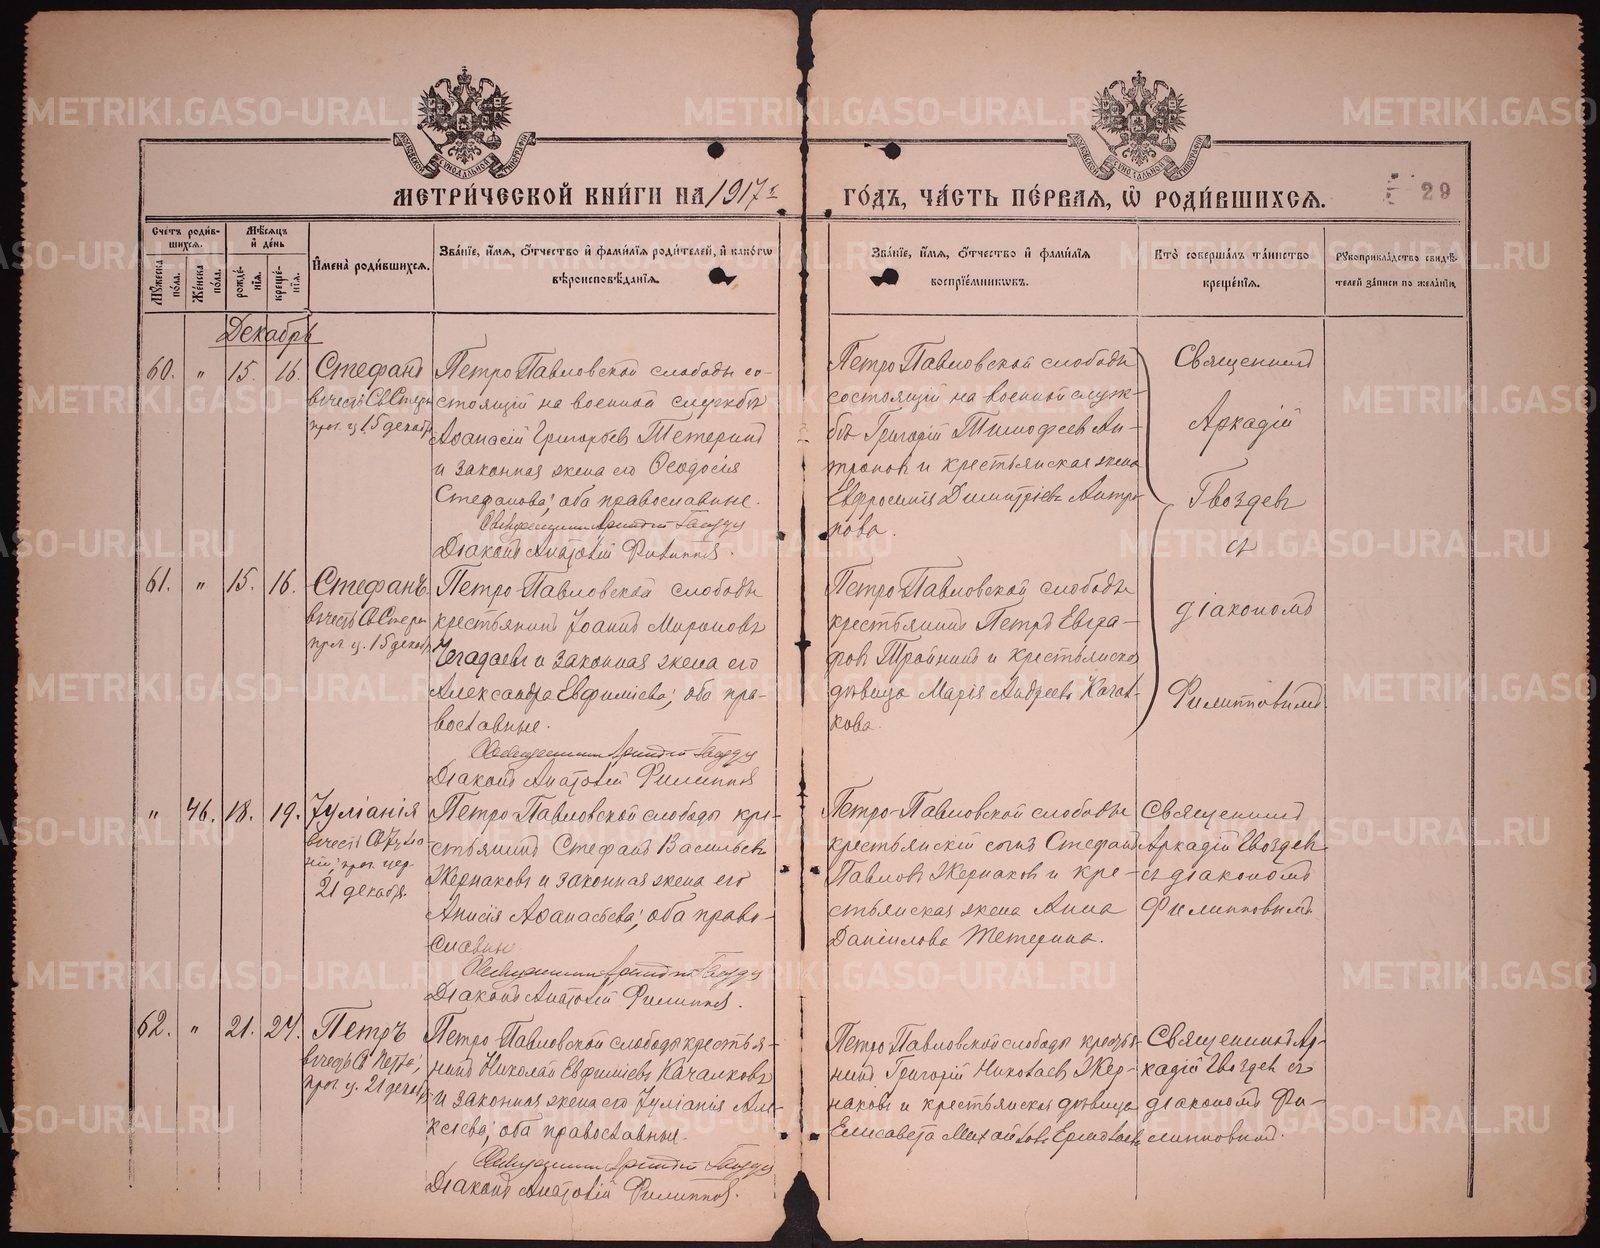 МЕТРИЧЕСКОЙ КНИГИ НА 1917 г.
ГОДЪ, ЧАСТЬ ПЕРВАЯ, Ѡ РОДИВШИХСЯ.
29
Счетъ родив-
шихся.
Мужеска пола.
Женска пола.
Мѣсяцъ
и день
рожде-
нія.
креще-
нія.
Имена родившихся.
Званіе, имя, отчество и фамилія родителей, и какогѡ
вѣроисповѣданія.
Званіе, имя, отчество и фамилія
воспріемникѡвъ.
Кто совершалъ таинство
крещенія.
Рукоприкладство свидѣ-
телей записи по желанію.
Декабрь
60. " 15. 16.
Стефанъ
въ честь Св. Стеф.
праз. ц. 15 декабря
Петро-Павловской слободы со-
стоящій на военной службѣ
Аѳанасій Григорьевъ Тетеринъ
и законная жена его Ѳеодосія
Стефанова; оба православные.
Священникъ Аркадій Гвоздевъ
Діаконъ Анатолій Филипповъ.
Петро-Павловской слободы
состоящій на военной служ-
бѣ Григорій Тимофеевъ Ан-
троповъ и крестьянская жена
Евфросинія Димитріева Антро-
пова.
Священникъ
Аркадій
Гвоздевъ
съ
діакономъ
Филипповымъ.
61. " 15. 16.
Стефанъ
въ честь Св. Стефа
праз. ц. 15 декабр
Петро-Павловской слободы
крестьянинъ Іоаннъ Мироновъ
Чегадаевъ и законная жена его
Александра Евфиміева; оба пра-
вославные.
Священникъ Аркадій Гвоздевъ
Діаконъ Анатолій Филипповъ
Петро-Павловской слободы
крестьянинъ Петръ Евгра-
фовъ Тройнинъ и крестьянская
дѣвица Марія Андреева Качал-
кова.
" 46. 18. 19.
Іуліанія
въ честь Св. Іуліа-
ніи, праз. цер.
21 декабря.
Петро-Павловской слободы кре-
стьянинъ Стефанъ Васильевъ
Жернаковъ и законная жена его
Анисія Аѳанасьева; оба право-
славные
Священникъ Аркадій Гвоздевъ
Діаконъ Анатолій Филипповъ.
Петро-Павловской слободы
крестьянскій сынъ Стефанъ
Павловъ Жернаковъ и кре-
стьянская жена Анна
Даніилова Тетерина.
Священникъ
Аркадій Гвоздевъ
съ діакономъ
Филипповымъ.
62. " 21. 24.
Петръ
въ честь Св. Петра;
праз. ц. 21 декабр
Петро-Павловской слободы крестья-
нинъ Николай Евфиміевъ Качалковъ
и законная жена его Іуліанія Але-
ксѣева; оба православные.
Священникъ Аркадій Гвоздевъ
Діаконъ Анатолій Филипповъ.
Петро-Павловской слободы крестья-
нинъ Григорій Николаевъ Жер-
наковъ и крестьянская дѣвица
Елисавета Михайлова
Священникъ Ар-
кадій Гвоздевъ съ
діакономъ Фи-
липповымъ.
METRIKI.GASO-URAL.RU